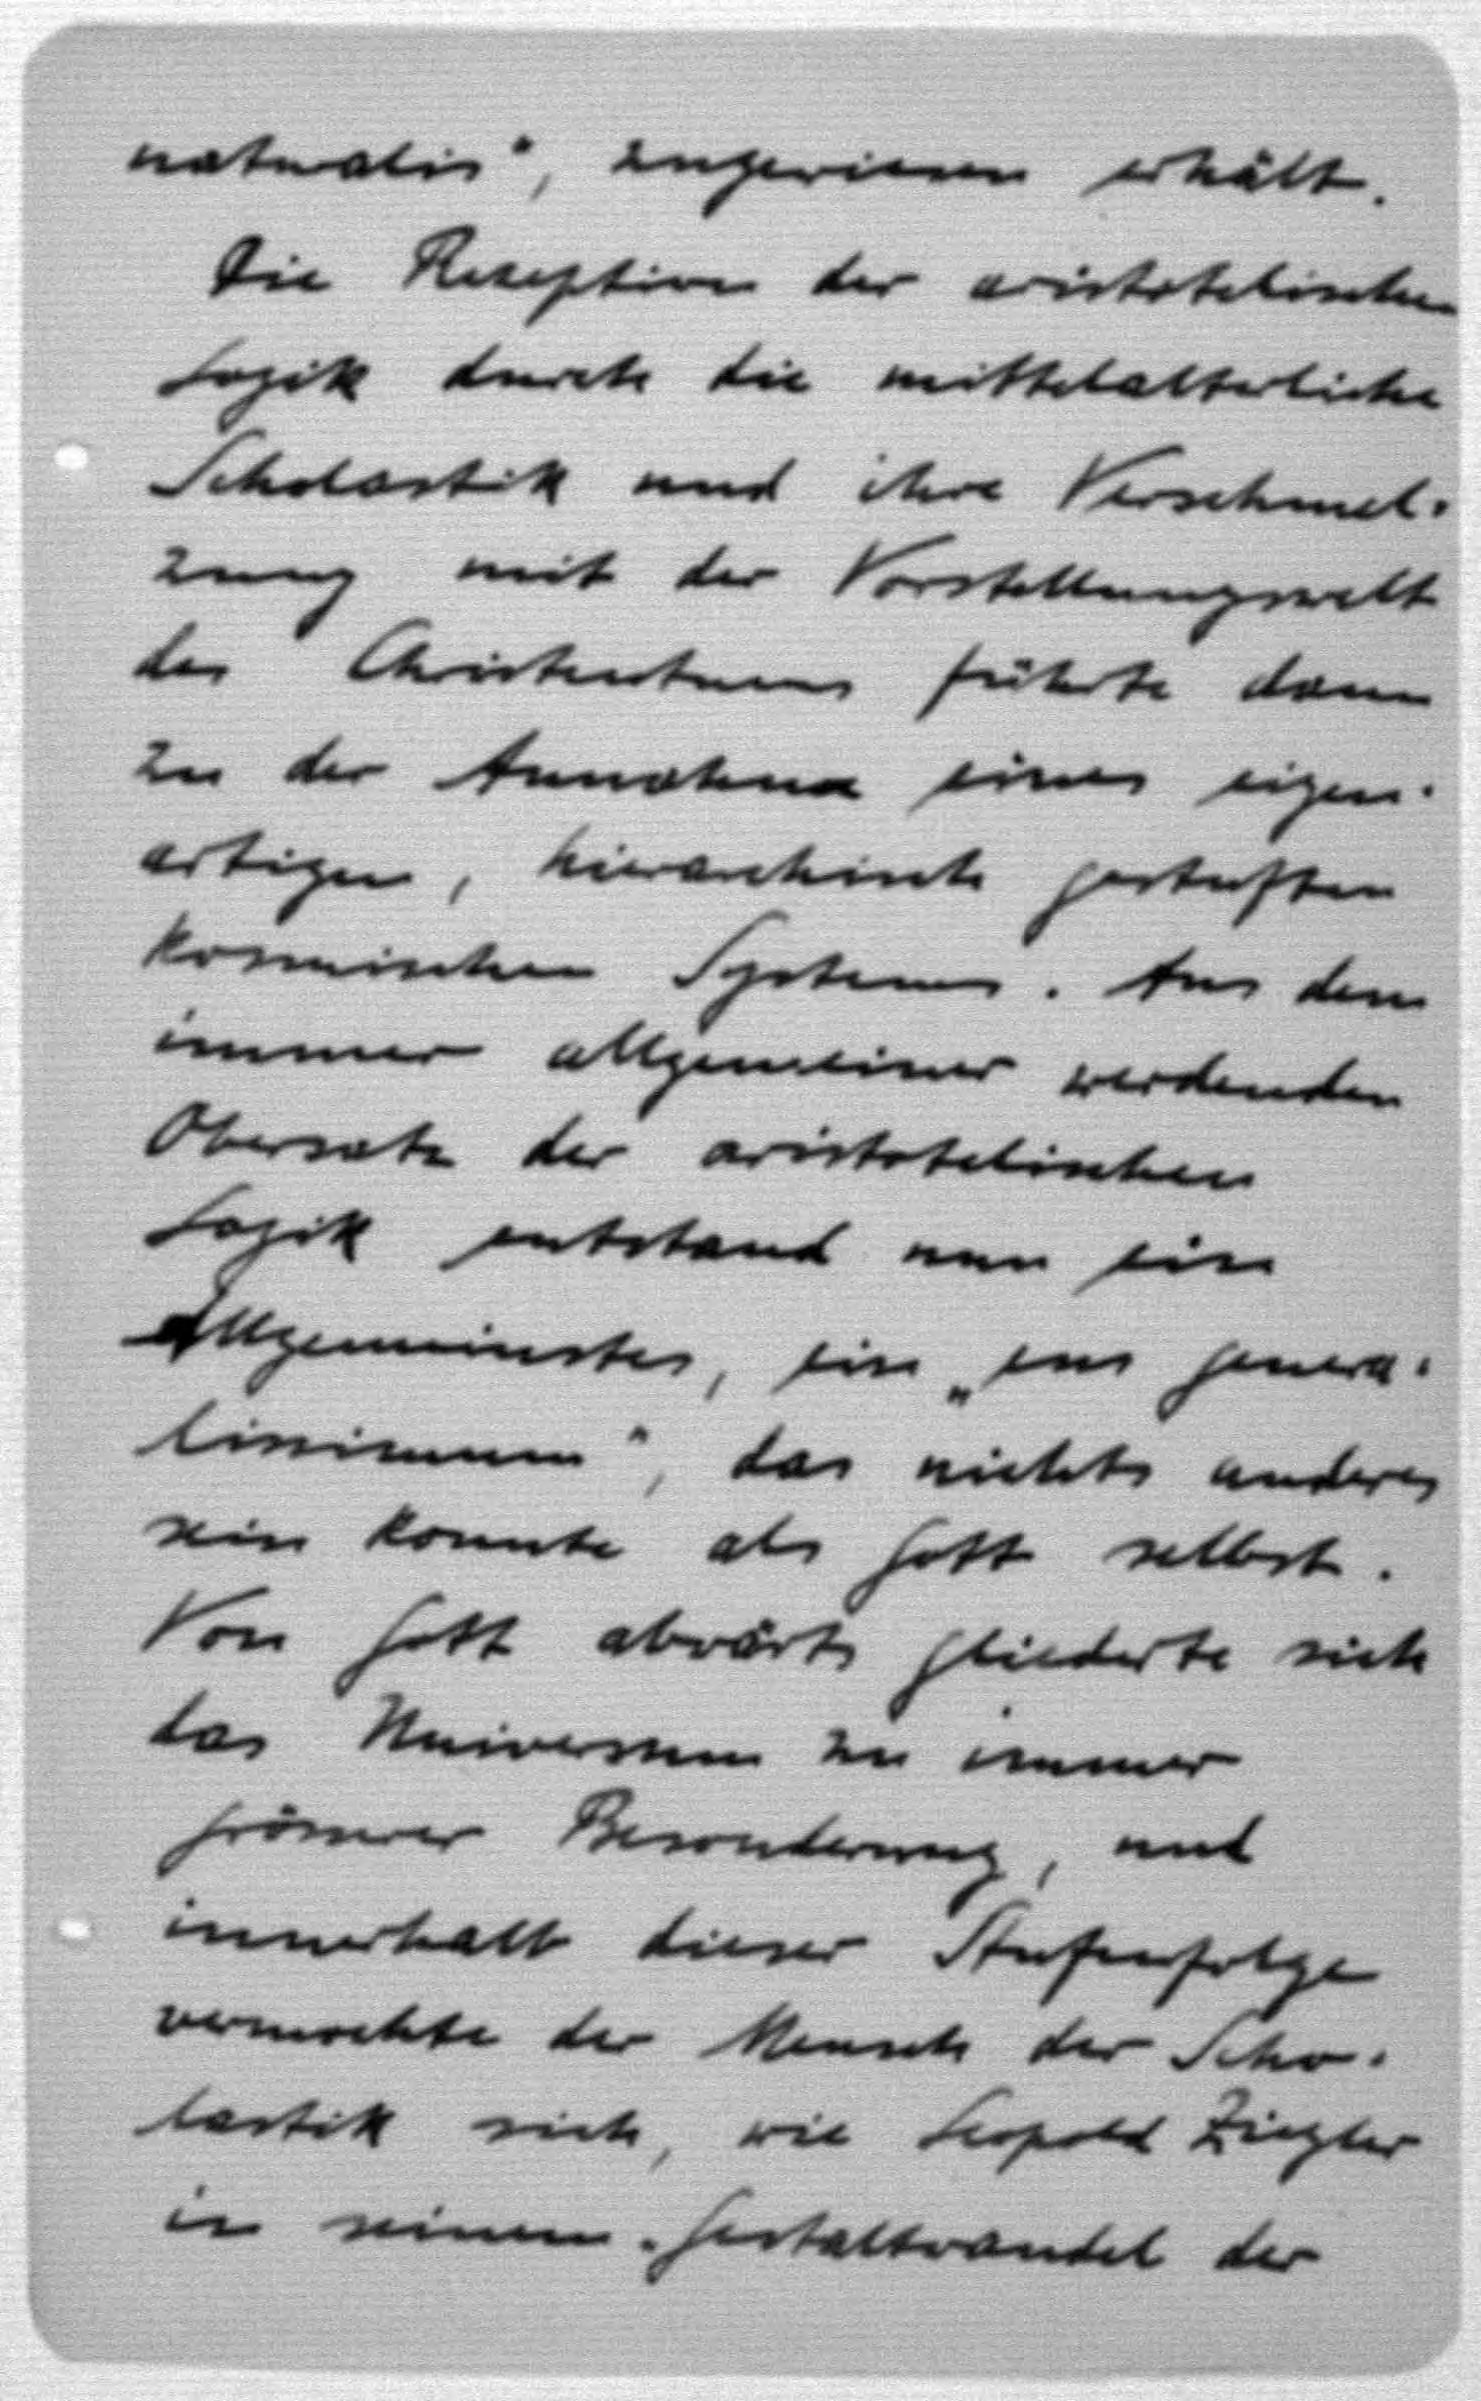 naturalis", zugewiesen erhält.
Die Rezeption der aristotelischen
Logik durch die mittelalterliche
Scholastik und ihre Verschmel-
zung mit der Vorstellungswelt
des Christentums führte dann
zu der Annahme eines eigen-
artigen, hierarchisch gestuften
kosmischen Systems. Aus dem
immer allgemeiner werdenden
Obersatz der aristotelischen
Logik entstand nun ein
Allgemeinstes, ein „ens genera-
lissimum", das nichts anderes
sein konnte als Gott selbst.
Von Gott abwärts gliederte sich
das Universum zu immer
grösserer Besonderung, und
innerhalb dieser Stufenfolge
vermochte der Mensch der Scho-
lastik sich, wie Leopold Ziegler
in seinem „Gestaltwandel der